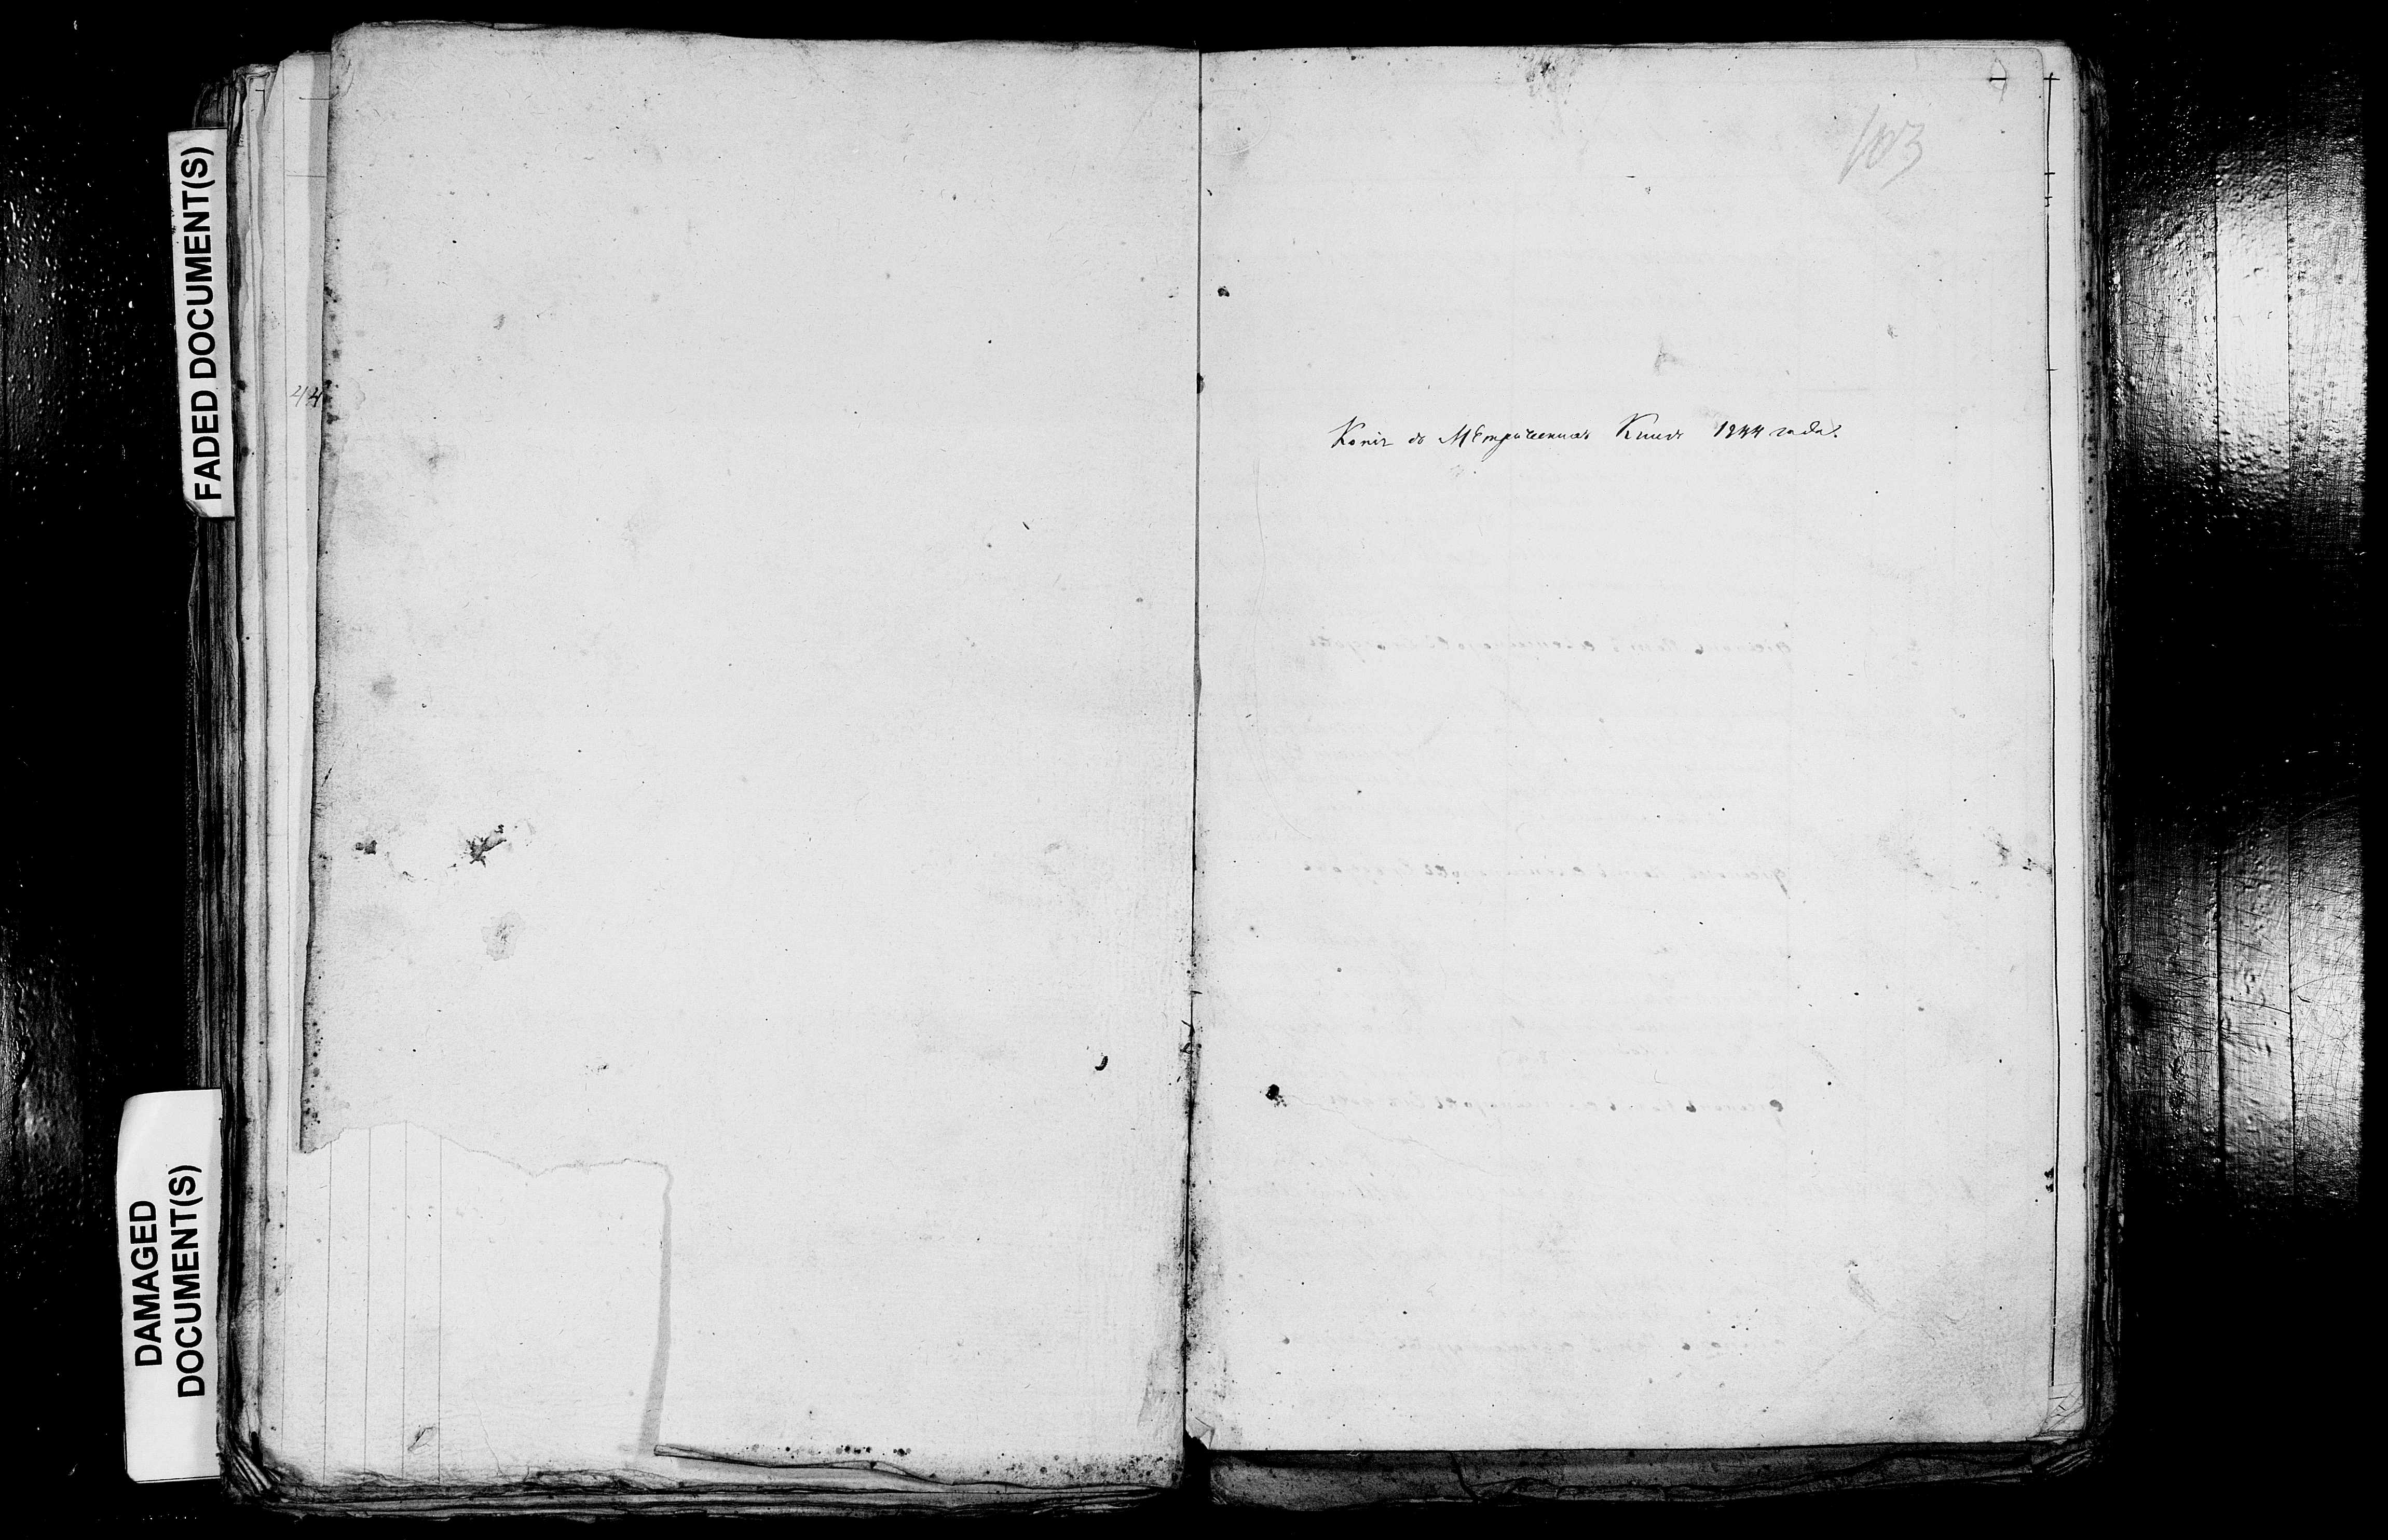 FADED DOCUMENT(S)
DAMAGED
DOCUMENT(S)
44
103
Копія съ Метрическихъ Книгъ 1844 года.